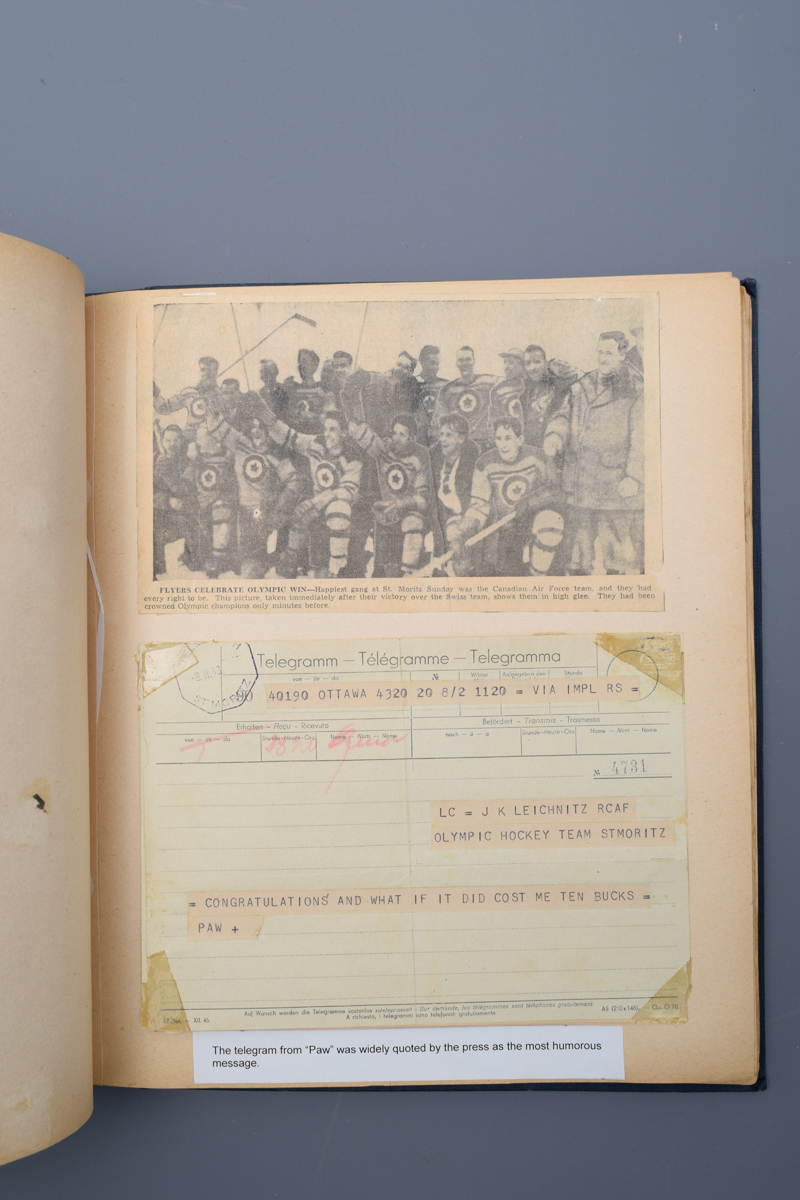 FLYERS CELEBRATE OLYMPIC WIN—Happiest gang at St. Moritz Sunday was the Canadian Air Force team, and they had
every right to be. This picture, taken immediately after their victory over the Swiss team, shows them in high glee. They had been
crowned Olympic champions only minutes before.
Telegramm — Télégramme — Telegramma
von — de — da
№
Wörter
Aufgegeben den
Stunde
40190 OTTAWA 4320 20 8/2 1120 = VIA IMPL RS =
Erhalten – Reçu – Ricevuto
Befördert – Transmis – Trasmesso
von — de — da
Stunde–Heure–Ora
Name — Nom — Nome
nach — à — a
Stunde–Heure–Ora
Name — Nom — Nome
№ 4731
LC = J K LEICHNITZ RCAF
OLYMPIC HOCKEY TEAM STMORITZ
= CONGRATULATIONS AND WHAT IF IT DID COST ME TEN BUCKS =
PAW +
XII. 46.
Auf Wunsch werden die Telegramme kostenlos zutelephoniert – Sur demande, les télégrammes sont téléphonés gratuitement
A richiesta, i telegrammi sono telefonati gratuitamente
A5 (210x148).
The telegram from “Paw” was widely quoted by the press as the most humorous
message.